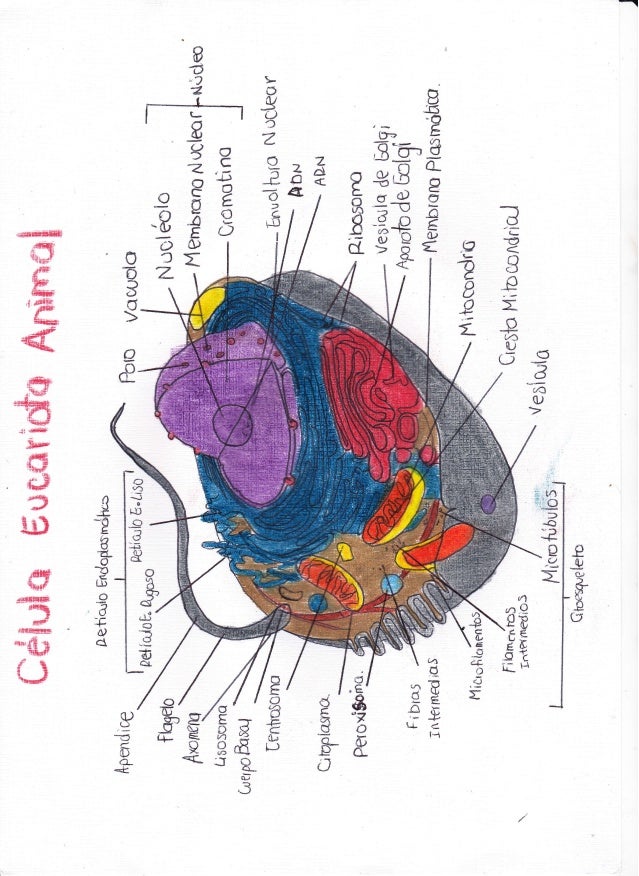 Célula Eucariota Animal
Reticulo Endoplasmatico
Reticulo E. Rugoso
Reticulo E. Liso
Apendice
Flagelo
Axomena
Lisosoma
Cuerpo Basal
Centrosoma
Citoplasma
Peroxisoma.
Fibras
Intermedias
Microfilamentos
Filamentos
Intermedios
Microtúbulos
Citoesqueleto
Poro
Vacuola
Nucléolo
Membrana Nuclear
Núcleo
Cromatina
Envoltura Nuclear
ADN
ADN
Ribosoma
Vesicula de Golgi
Aparato de Golgi
Membrana Plasmática.
Mitocondra
Cresta Mitocondrial
Vesicula